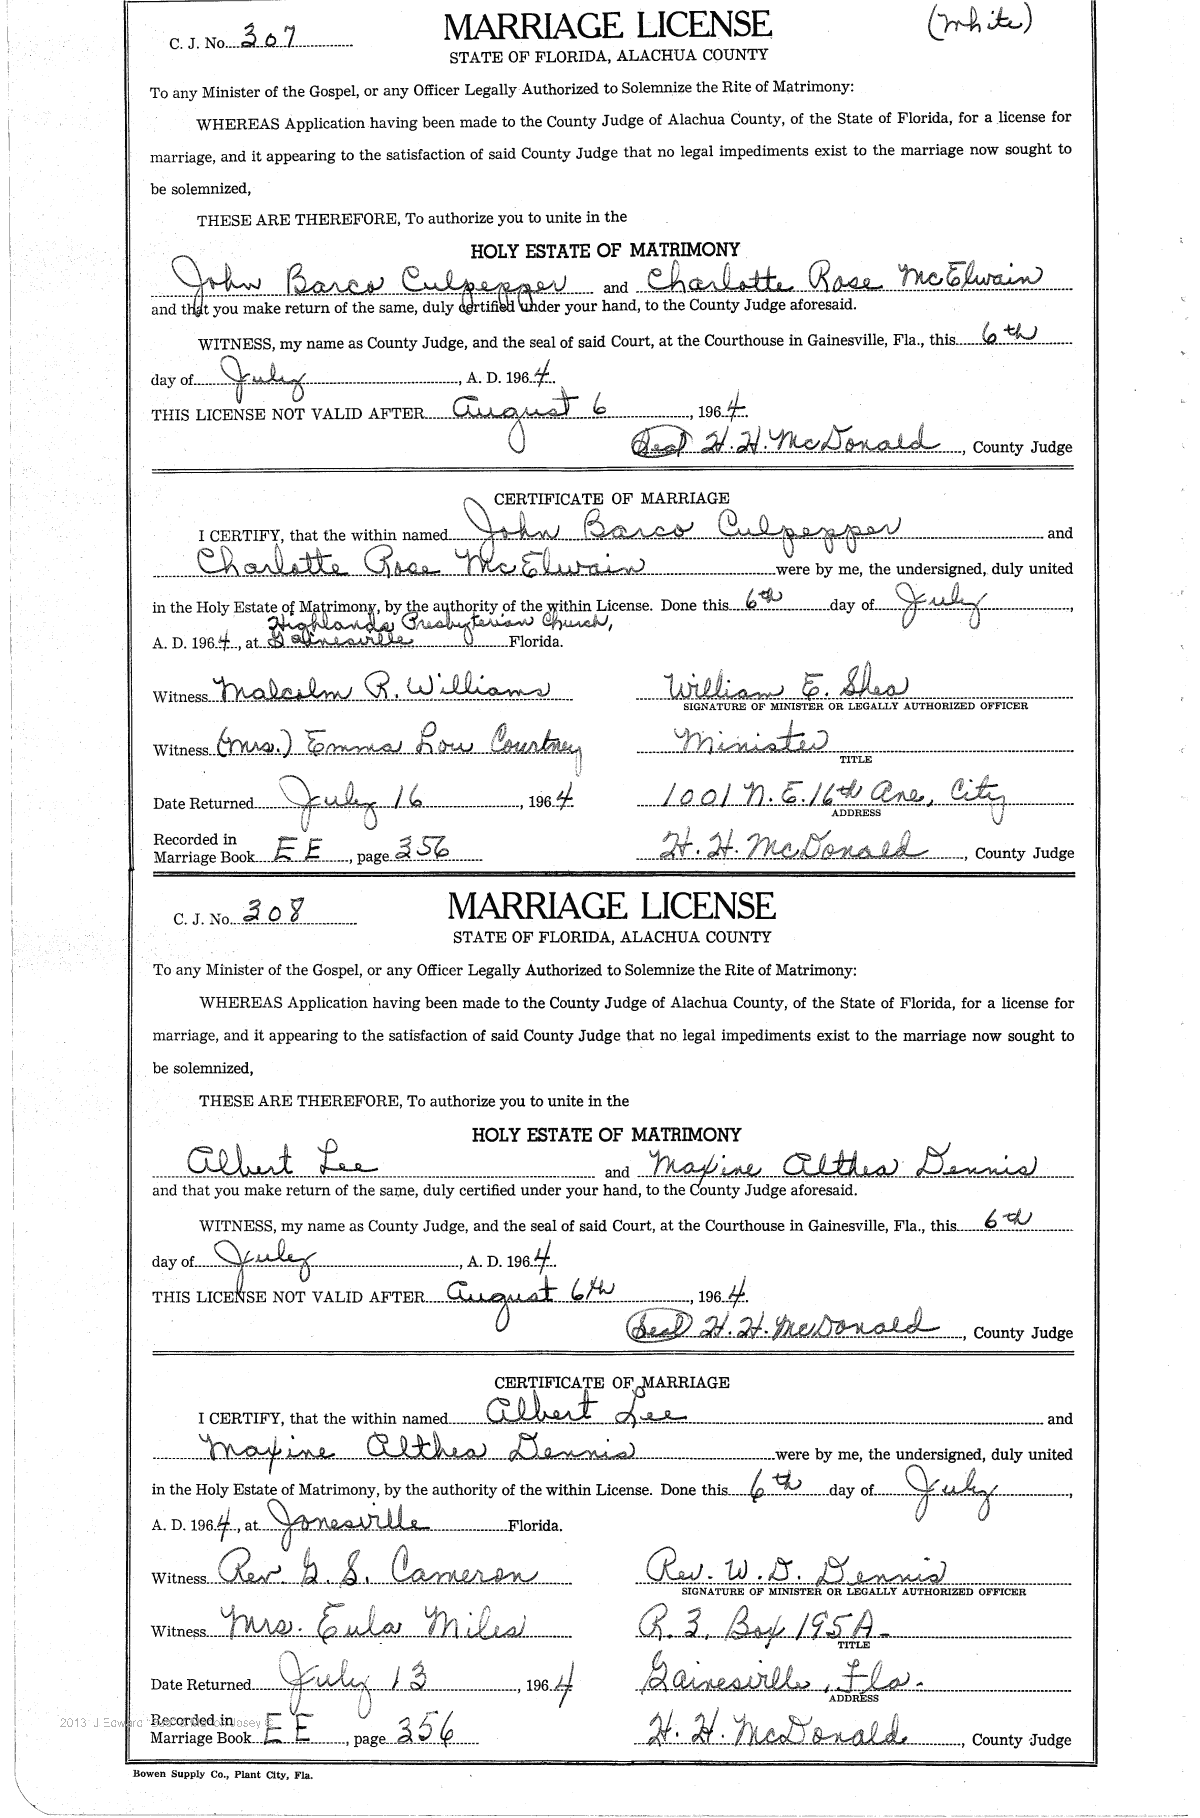 C. J. No. 307
MARRIAGE LICENSE
(White)
STATE OF FLORIDA, ALACHUA COUNTY
To any Minister of the Gospel, or any Officer Legally Authorized to Solemnize the Rite of Matrimony:
WHEREAS Application having been made to the County Judge of Alachua County, of the State of Florida, for a license for
marriage, and it appearing to the satisfaction of said County Judge that no legal impediments exist to the marriage now sought to
be solemnized,
THESE ARE THEREFORE, To authorize you to unite in the
HOLY ESTATE OF MATRIMONY
John Barco Culpepper and Charlotte Rose McElwain
and that you make return of the same, duly certified under your hand, to the County Judge aforesaid.
WITNESS, my name as County Judge, and the seal of said Court, at the Courthouse in Gainesville, Fla., this 6th
day of July, A. D. 1964.
THIS LICENSE NOT VALID AFTER August 6, 1964.
(Seal) H. H. McDonald, County Judge
CERTIFICATE OF MARRIAGE
I CERTIFY, that the within named John Barco Culpepper and
Charlotte Rose McElwain were by me, the undersigned, duly united
in the Holy Estate of Matrimony, by the authority of the within License. Done this 6th day of July,
Highlands Presbyterian Church,
A. D. 1964, at Gainesville Florida.
Witness Malcolm R. Williams William E. Shea
SIGNATURE OF MINISTER OR LEGALLY AUTHORIZED OFFICER
Witness (Mrs.) Emma Lou Courtney Minister
TITLE
Date Returned July 16, 1964 1001 N. E. 16th Ave, City
ADDRESS
Recorded in
Marriage Book EE, page 356 H. H. McDonald, County Judge
C. J. No. 308
MARRIAGE LICENSE
STATE OF FLORIDA, ALACHUA COUNTY
To any Minister of the Gospel, or any Officer Legally Authorized to Solemnize the Rite of Matrimony:
WHEREAS Application having been made to the County Judge of Alachua County, of the State of Florida, for a license for
marriage, and it appearing to the satisfaction of said County Judge that no legal impediments exist to the marriage now sought to
be solemnized,
THESE ARE THEREFORE, To authorize you to unite in the
HOLY ESTATE OF MATRIMONY
Albert Lee and Maxine Althea Dennis
and that you make return of the same, duly certified under your hand, to the County Judge aforesaid.
WITNESS, my name as County Judge, and the seal of said Court, at the Courthouse in Gainesville, Fla., this 6th
day of July, A. D. 1964.
THIS LICENSE NOT VALID AFTER August 6th, 1964.
(Seal) H. H. McDonald, County Judge
CERTIFICATE OF MARRIAGE
I CERTIFY, that the within named Albert Lee and
Maxine Althea Dennis were by me, the undersigned, duly united
in the Holy Estate of Matrimony, by the authority of the within License. Done this 6th day of July,
A. D. 1964, at Jonesville Florida.
Witness Rev. G. S. Cameron Rev. W. D. Dennis
SIGNATURE OF MINISTER OR LEGALLY AUTHORIZED OFFICER
Witness Mrs. Eula Miles R. 3, Box 195A-
TITLE
Date Returned July 13, 1964 Gainesville, Fla.
ADDRESS
2013 J Edward
Recorded in
Marriage Book EE, page 356 H. H. McDonald, County Judge
Bowen Supply Co., Plant City, Fla.